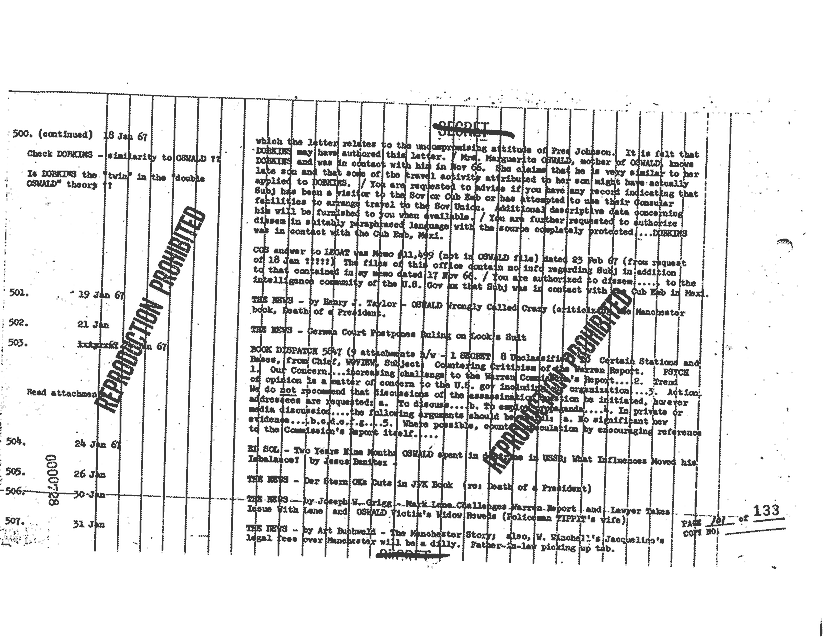 SECRET
500. (continued) 18 Jan 67
Check DOBKINS - similarity to OSWALD ??
Is DOBKINS the "twin" in the "double
OSWALD" theory ??
which the letter relates to the uncompromising attitude of Pres Johnson. It is felt that
DOBKINS may have authored this letter. / Mrs. Marguerite OSWALD, mother of OSWALD, knows
DOBKINS and was in contact with him in Nov 66. She claims that he is very similar to her
late son and that some of the travel activity attributed to her son might have actually
applied to DOBKINS. / You are requested to advise if you have any record indicating that
Subj has been a visitor to the Sov or Cub Emb or has attempted to use their Consular
facilities to arrange travel to the Sov Union. Additional descriptive data concerning
him will be furnished to you when available. / You are further requested to authorize
dissem in suitably paraphrased language with the source completely protected....DOBKINS
was in contact with the Cub Emb, Mexi.
COS answer to LEGAT was Memo #11,499 (not in OSWALD file) dated 23 Feb 67 (from request
of 18 Jan ?????) The files of this office contain no info regarding Subj in addition
to that contained in my memo dated 17 Nov 66. / You are authorized to dissem..... to the
intelligence community of the U.S. Gov that Subj was in contact with the Cub Emb in Mexi.
501. 19 Jan 67
THE NEWS - by Henry J. Taylor - OSWALD Wrongly Called Crazy (criticizing the Manchester
book, Death of a President.
502. 21 Jan
THE NEWS - German Court Postpones Ruling on Look's Suit
503. Jan 67
BOOK DISPATCH 5847 (9 attachments h/w - 1 SECRET 8 Unclassified) Certain Stations and
Bases, from Chief, WOVIEW, Subject: Countering Criticism of the Warren Report. PSYCH
1. Our Concern....increasing challenge to the Warren Commission's Report....2. Trend
of opinion is a matter of concern to the U.S. gov including our organization....3. Action:
We do not recommend that discussions of the assassination question be initiated, however
addressees are requested: a. To discuss....b. To employ propaganda....4. In private or
media discussion....the following arguments should be useful: a. No significant new
evidence....b.c.d.e.f.g....5. Where possible, counter speculation by encouraging reference
to the Commission's Report itself.....
Read attachment
504. 24 Jan 67
EL SOL - Two Years Nine Months OSWALD spent in time in USSR; What Influences Moved his
Imbalance? by Jesus Benitez
505. 26 Jan
THE NEWS - Der Stern OKs Cuts in JFK Book (re: Death of a President)
506. 30 Jan
THE NEWS - by Joseph W. Grigg - Mark Lane Challenges Warren Report and Lawyer Takes
Issue With Lane and OSWALD Victim's Widow Reweds (Policeman TIPPIT's wife)
507. 31 Jan
THE NEWS - by Art Buchwald - The Manchester Story; also, W. Winchell's Jacqueline's
legal fees over Manchester will be a dilly. Father-in-law picking up tab.
SECRET
0000728
PAGE 101 of 133
COPY NO:
REPRODUCTION PROHIBITED
REPRODUCTION PROHIBITED